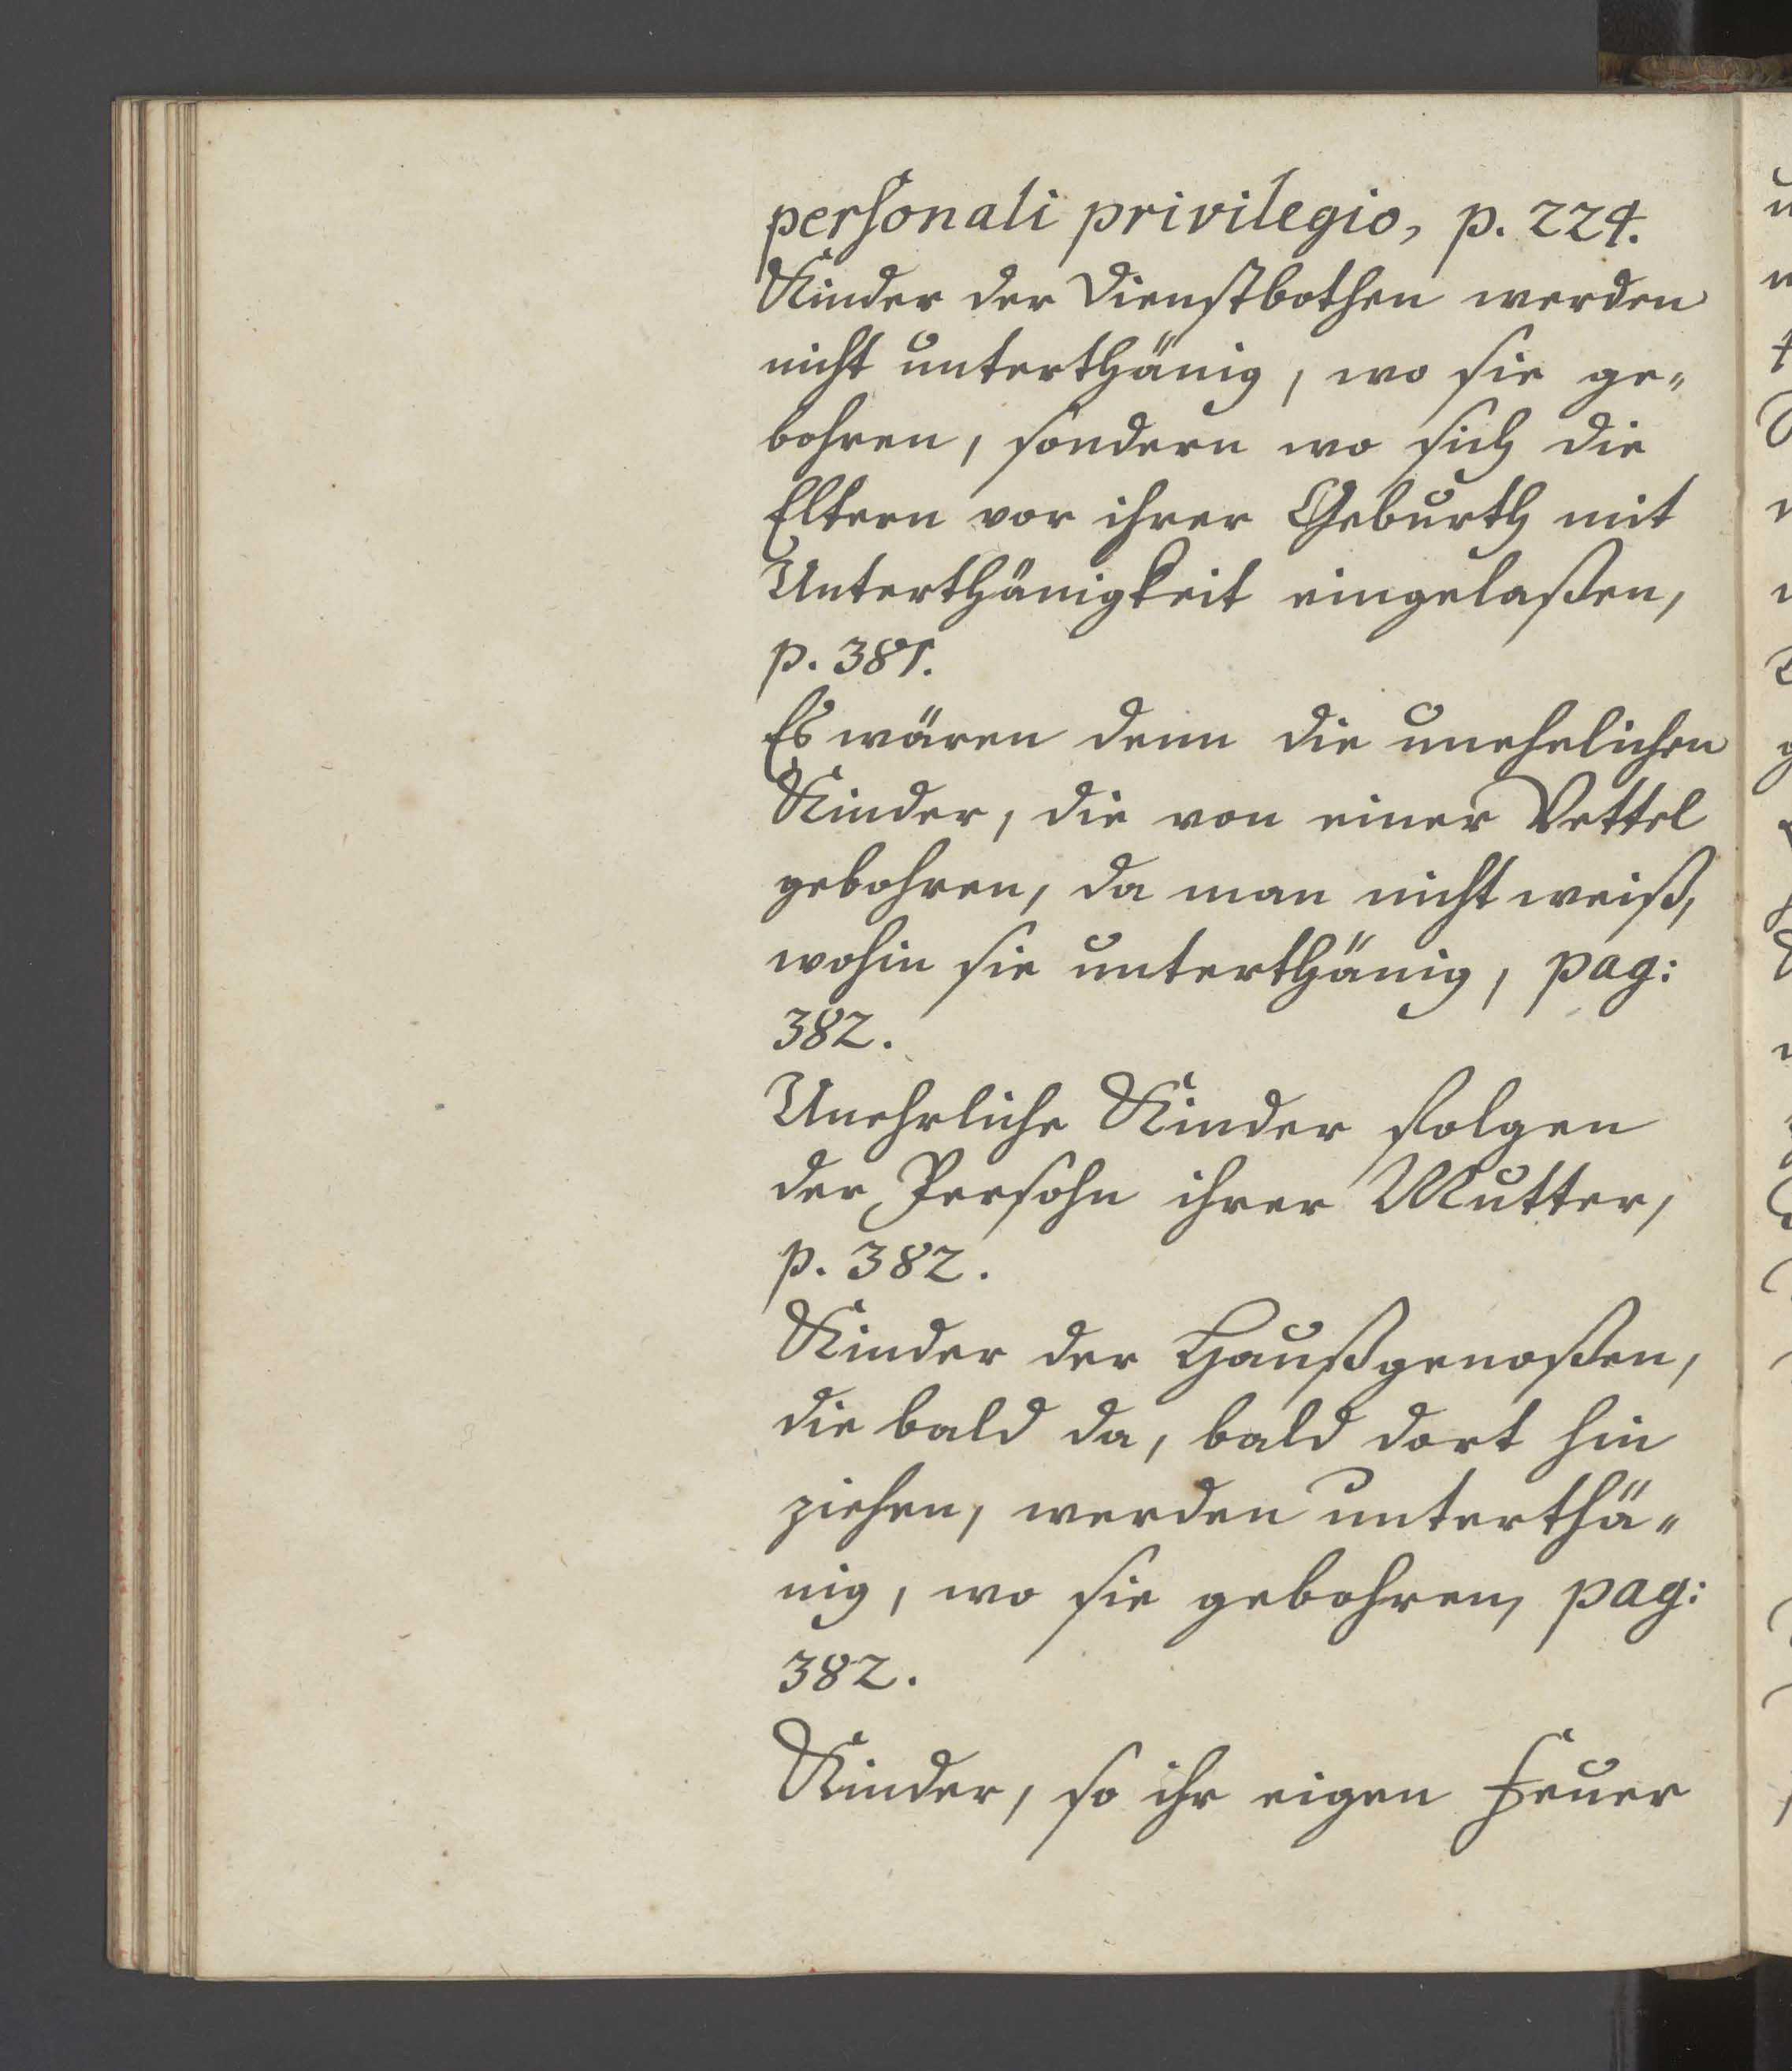 personali privilegio, p. 224.
Kinder der Dienstbothen werden
nicht unterthänig, wo sie ge„
bohren, sondern wo sich die
Eltern vor ihrer Geburth mit
Unterthänigkeit eingelaßen,
p. 381.
Es wären denn die unehelichen
Kinder, die von einer Vettel
gebohren, da man nicht weiß,
wohin sie unterthänig, pag:
382.
Unehrliche Kinder folgen
der Persohn ihrer Mutter,
p. 382.
Kinder der Haußgenoßen,
die bald da, bald dort hin
ziehen, werden unterthä„
nig, wo sie gebohren, pag:
382.
Kinder, so ihr eigen Feuer